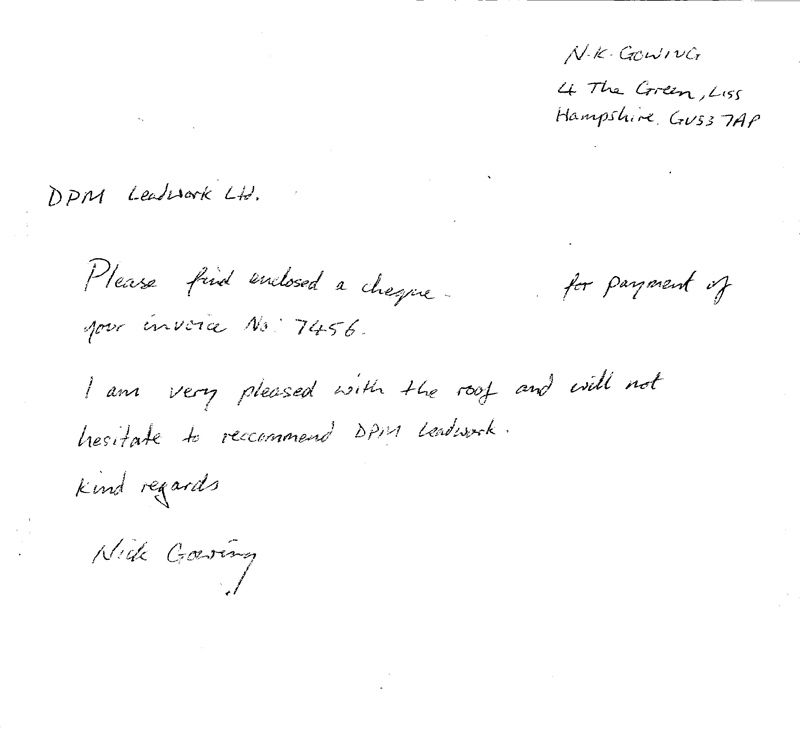 N.K. GOWING
4 The Green, Liss
Hampshire. GU33 7AP
DPM Leadwork Ltd.
Please find enclosed a cheque - for payment of
your invoice No: 7456.
I am very pleased with the roof and will not
hesitate to reccommend DPM Leadwork.
Kind regards
Nick Gowing